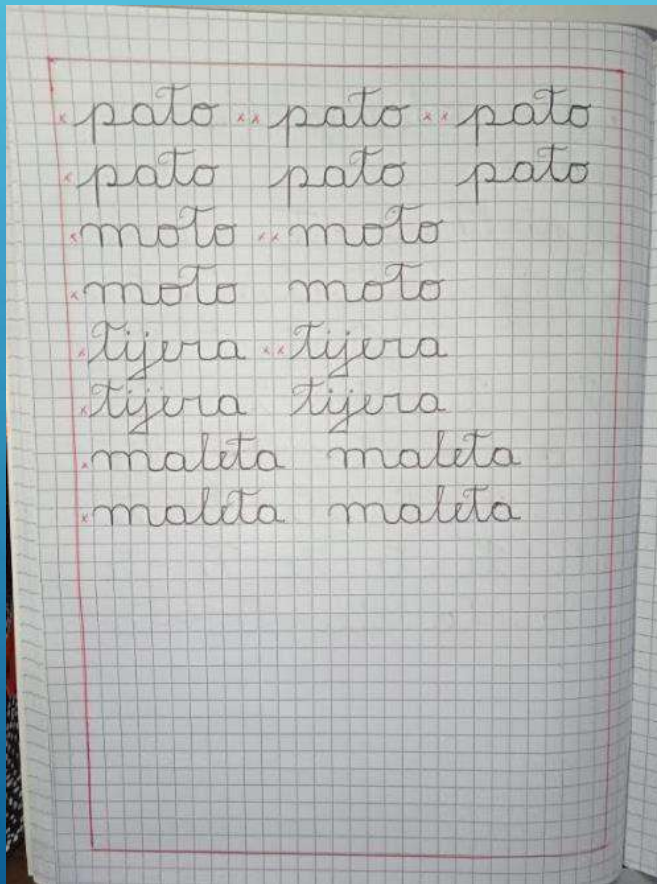 pato pato pato
pato pato pato
moto moto
moto moto
tijera tijera
tijera tijera
maleta maleta
maleta maleta